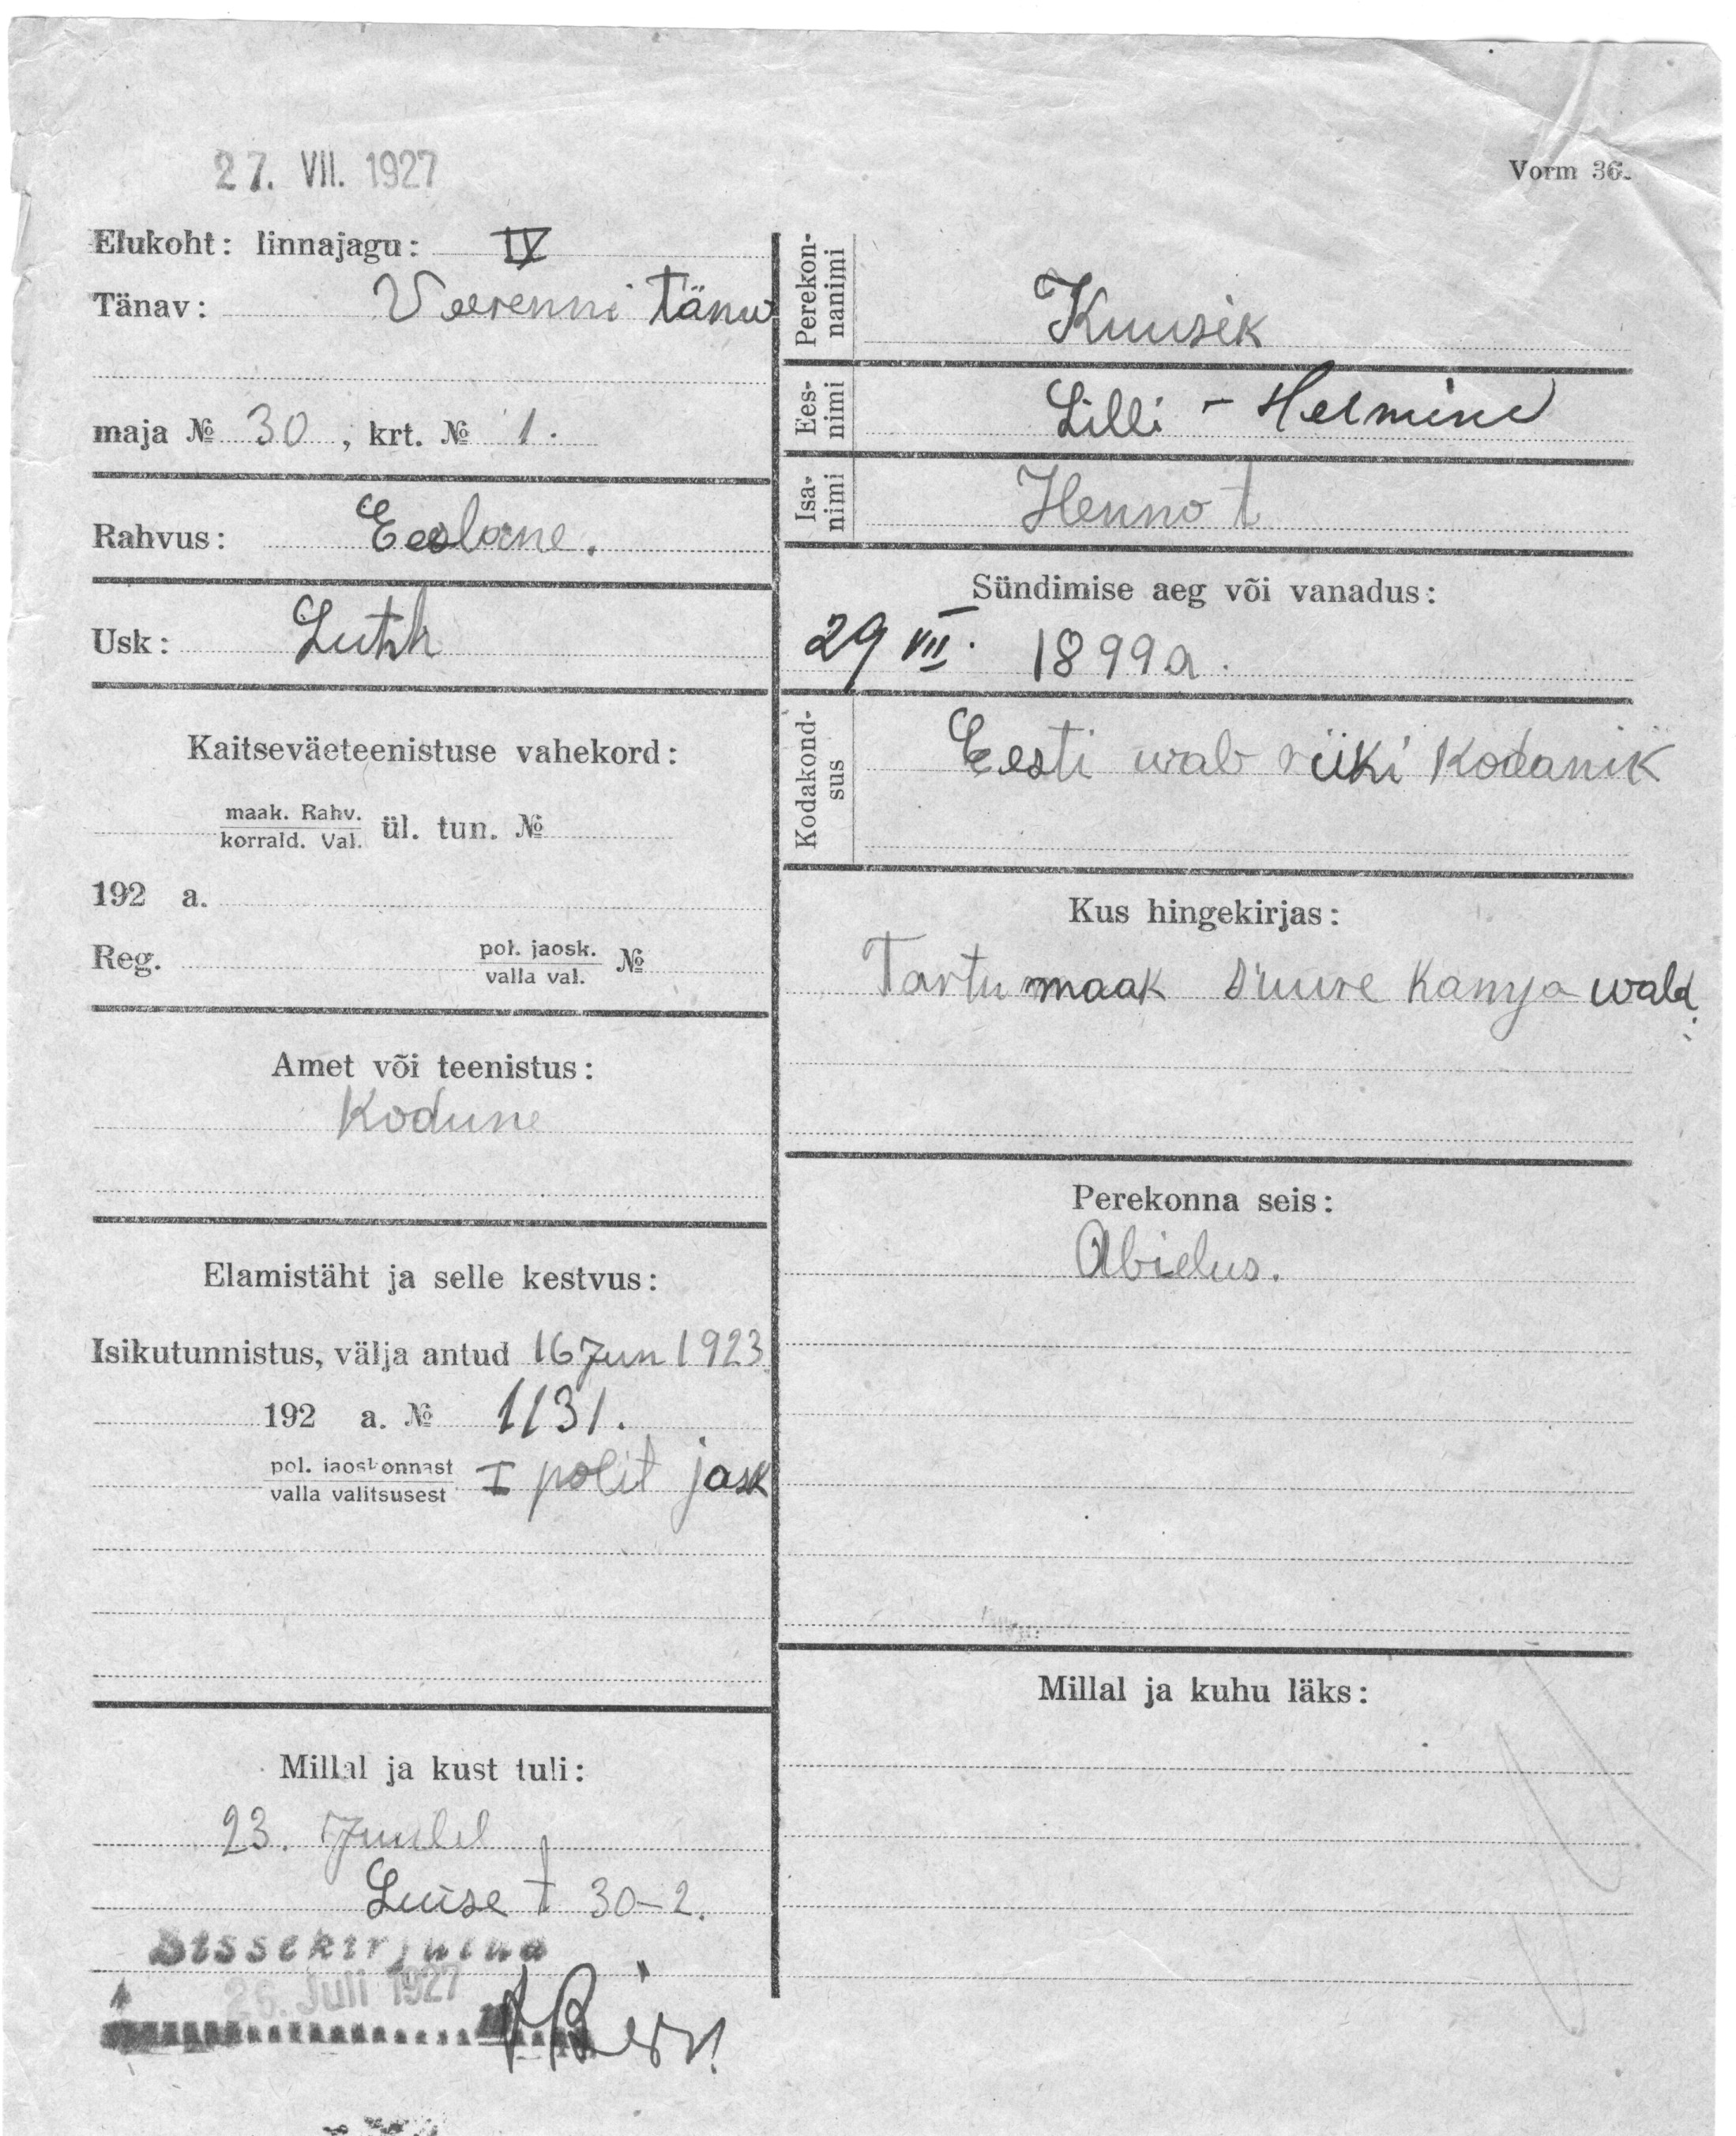 27. VII. 1927
Vorm 36.
Elukoht: linnajagu: IV
Tänav: Veerenni tänw
maja № 30, krt. № 1.
Rahvus: Eeslane.
Usk: Luth
Kaitseväeteenistuse vahekord:
maak. Rahv.
korrald. Val. ül. tun. №
192 a.
Reg. pol. jaosk. №
valla val.
Amet või teenistus:
Kodune
Elamistäht ja selle kestvus:
Isikutunnistus, välja antud 16 Jun 1923
192 a. № 1131.
pol. jaoskonnast I polit jask
valla valitsusest
Millal ja kust tuli:
23. Juulil
Luise t 30-2.
Sissekirjutud
26. Juli 1927
Perekonnanimi
Kuusik
Eesnimi
Lilli - Helmine
Isanimi
Henno t
Sündimise aeg või vanadus:
29 VII. 1899 a.
Kodakondsus
Eesti wab riiki kodanik
Kus hingekirjas:
Tartu maak Suure Kamja wald.
Perekonna seis:
Abielus.
Millal ja kuhu läks: